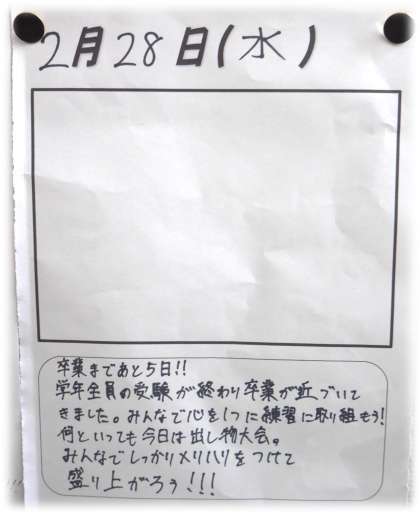 2月28日(水)
卒業まであと5日!!
学年全員の受験が終わり卒業が近づいて
きました。みんなで心を1つに練習に取り組もう!
何といっても今日は出し物大会。
みんなでしっかりメリハリをつけて
盛り上がろう!!!